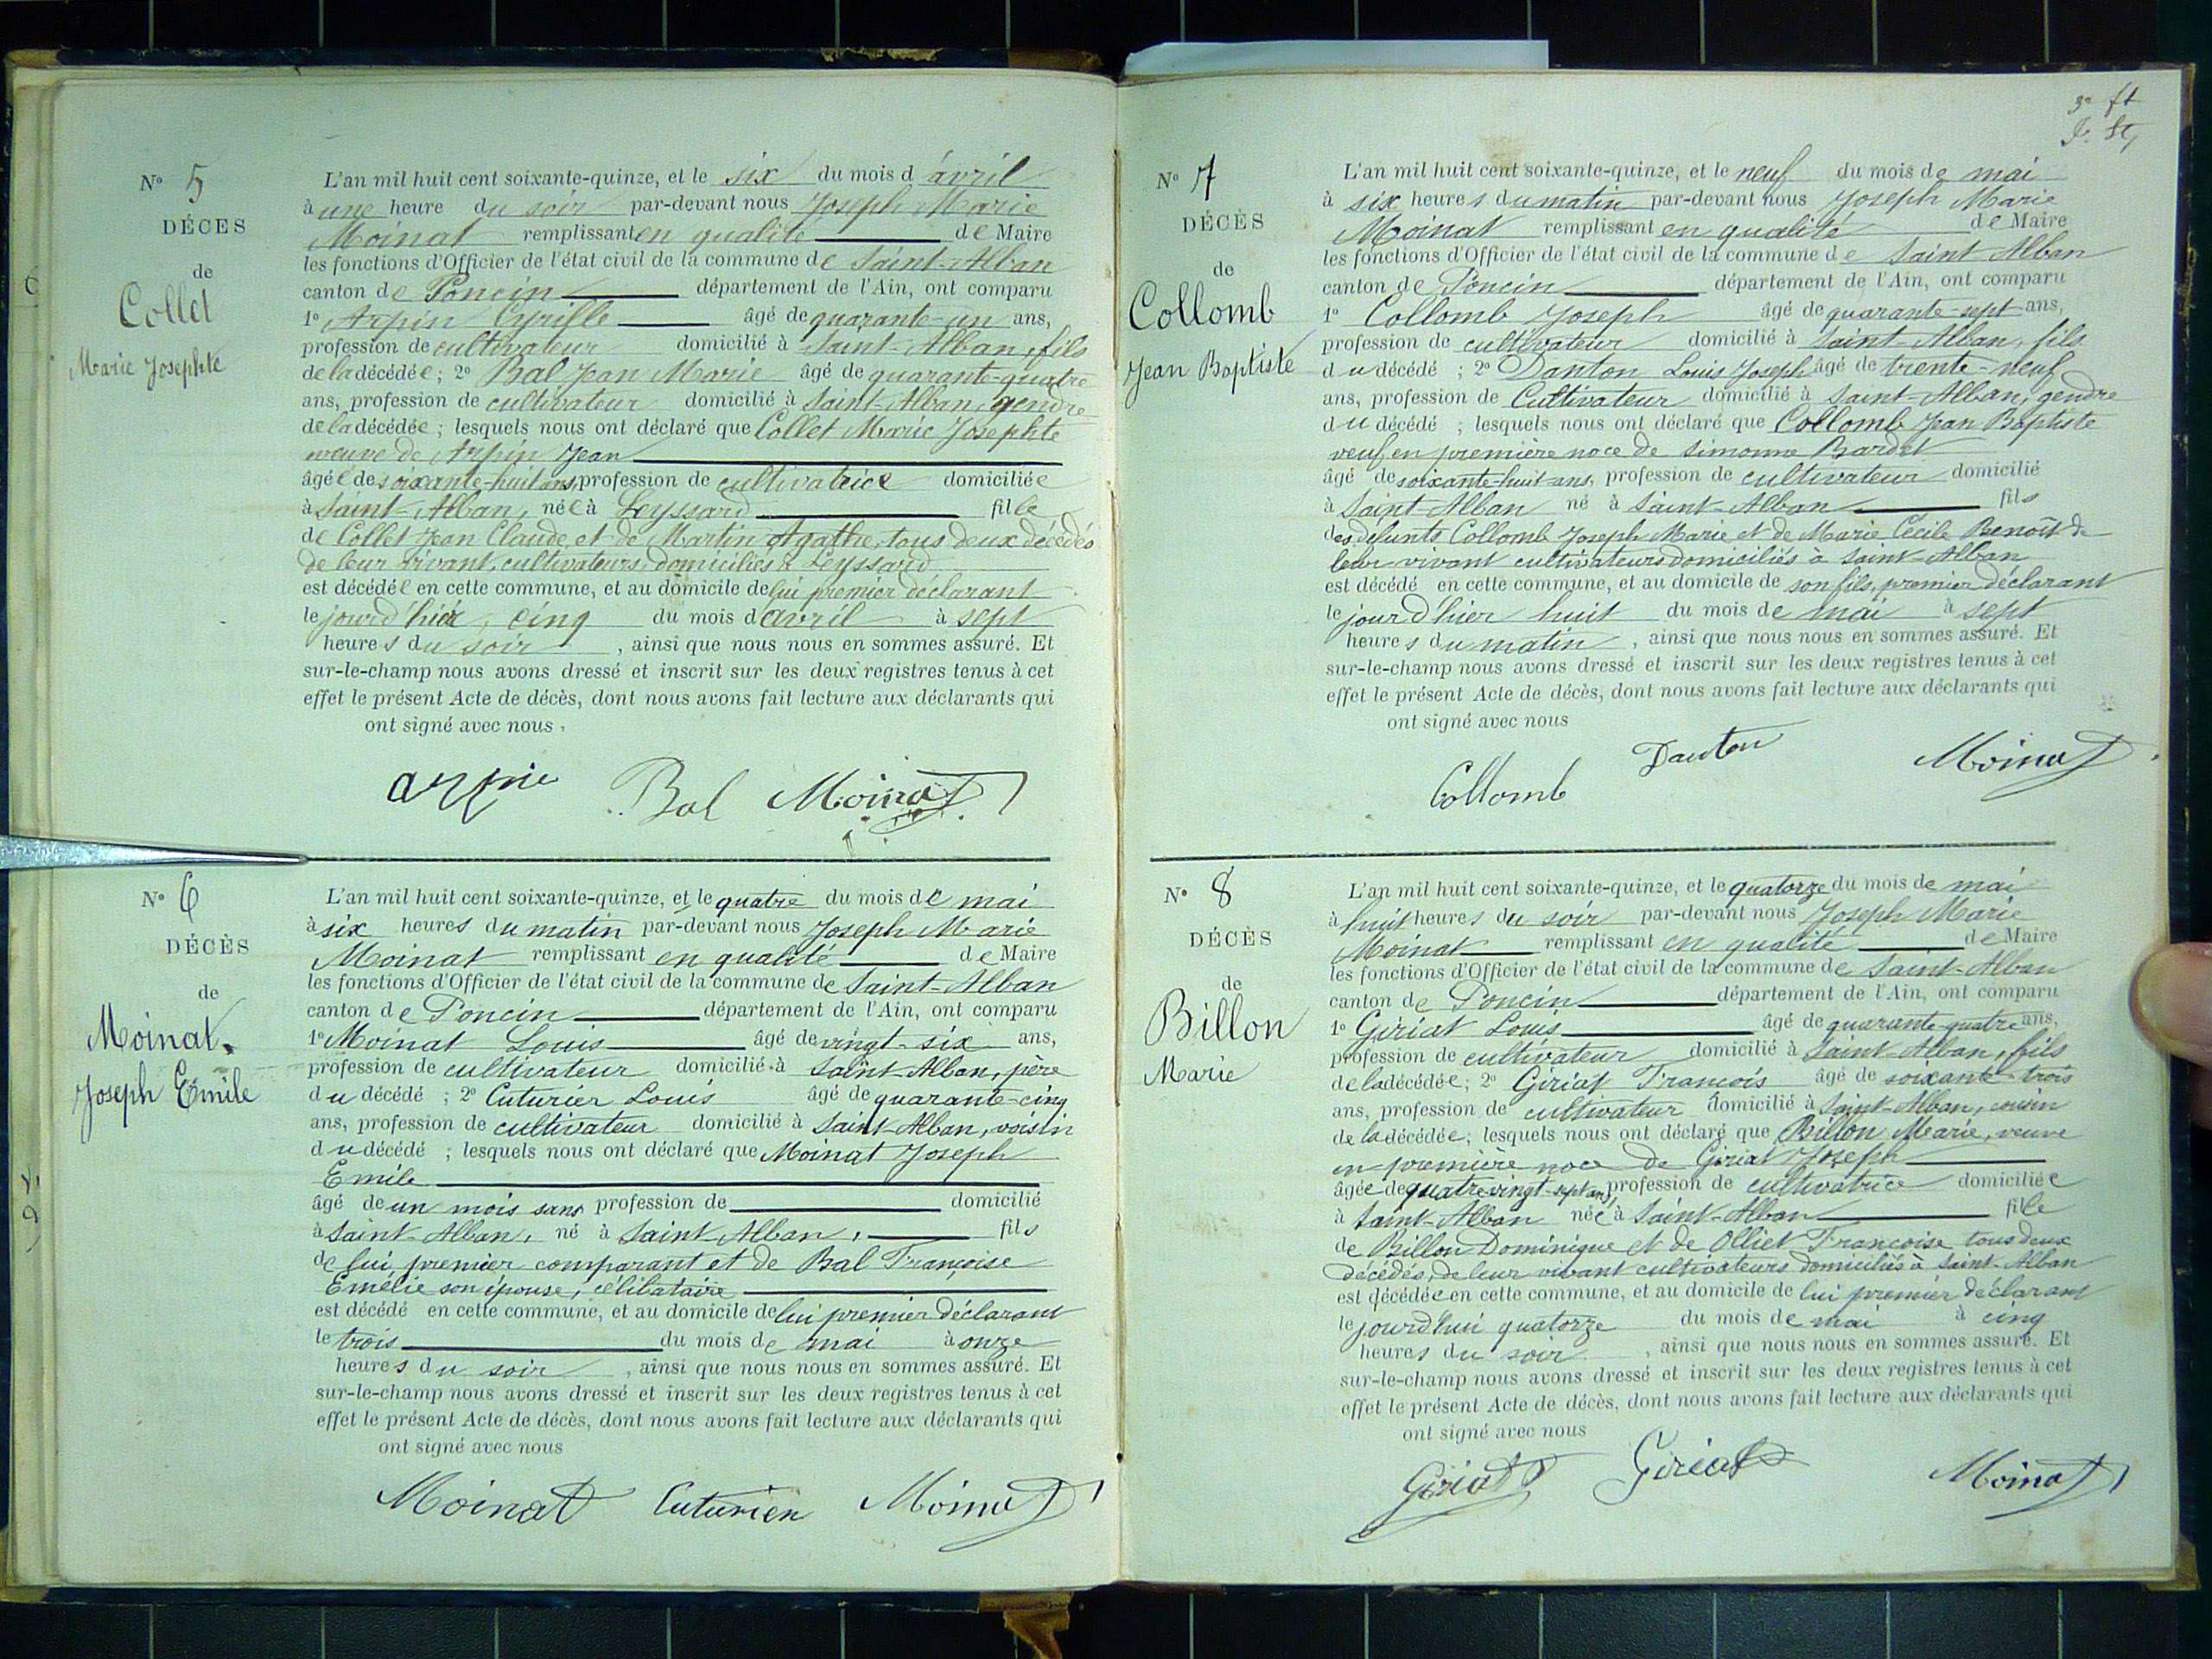 N° 5
DÉCES
de
Collet
Marie Josephte
L'an mil huit cent soixante-quinze, et le six du mois d'avril
à une heure du soir par-devant nous Joseph Marie
Moinat remplissant en qualité de Maire
les fonctions d'Officier de l'état civil de la commune de Saint-Alban
canton de Poncin département de l'Ain, ont comparu
1° Arpin Cyrille âgé de quarante-un ans,
profession de cultivateur domicilié à Saint-Alban, fils
de la décédée; 2° Bal Jean Marie âgé de quarante-quatre
ans, profession de cultivateur domicilié à Saint-Alban, gendre
de la décédée; lesquels nous ont déclaré que Collet Marie Josephte
veuve de Arpin Jean
âgée de soixante-huit ans, profession de cultivatrice domiciliée
à Saint-Alban, née à Leyssard fille
de Collet Jean Claude et de Martin Agathe, tous deux décédés
de leur vivant, cultivateurs, domiciliés à Leyssard
est décédée en cette commune, et au domicile de lui premier déclarant
le jour d'hier, cinq du mois d'avril à sept
heures du soir, ainsi que nous nous en sommes assuré. Et
sur-le-champ nous avons dressé et inscrit sur les deux registres tenus à cet
effet le présent Acte de décès, dont nous avons fait lecture aux déclarants qui
ont signé avec nous.
arpin Bal Moinat
N° 6
DÉCÈS
de
Moinat.
Joseph Emile
L'an mil huit cent soixante-quinze, et le quatre du mois de mai
à six heures du matin par-devant nous Joseph Marie
Moinat remplissant en qualité de Maire
les fonctions d'Officier de l'état civil de la commune de Saint-Alban
canton de Poncin département de l'Ain, ont comparu
1° Moinat Louis âgé de vingt-six ans,
profession de cultivateur domicilié à Saint-Alban, père
du décédé; 2° Cuturier Louis âgé de quarante-cinq
ans, profession de cultivateur domicilié à Saint-Alban, voisin
du décédé; lesquels nous ont déclaré que Moinat Joseph
Emile
âgé de un mois sans profession de domicilié
à Saint-Alban, né à Saint-Alban, fils
de lui, premier comparant et de Bal Françoise
Emélie son épouse, célibataire
est décédé en cette commune, et au domicile de lui premier déclarant
le trois du mois de mai à onze
heures du soir, ainsi que nous nous en sommes assuré. Et
sur-le-champ nous avons dressé et inscrit sur les deux registres tenus à cet
effet le présent Acte de décès, dont nous avons fait lecture aux déclarants qui
ont signé avec nous
Moinat Cuturier Moinat
N° 7
DÉCÈS
de
Collomb
Jean Baptiste
L'an mil huit cent soixante-quinze, et le neuf du mois de mai
à six heures du matin par-devant nous Joseph Marie
Moinat remplissant en qualité de Maire
les fonctions d'Officier de l'état civil de la commune de Saint Alban
canton de Poncin département de l'Ain, ont comparu
1° Collomb Joseph âgé de quarante-sept ans,
profession de cultivateur domicilié à Saint-Alban, fils
du décédé; 2° Danton Louis Joseph âgé de trente-neuf
ans, profession de Cultivateur domicilié à Saint-Alban, gendre
du décédé; lesquels nous ont déclaré que Collomb Jean Baptiste
veuf en première noce de Simonne Bardet
âgé de soixante-huit-ans, profession de cultivateur domicilié
à Saint Alban né à Saint-Alban fils
des défunts Collomb Joseph Marie et de Marie Cécile Benoît de
leur vivant cultivateurs domiciliés à Saint-Alban
est décédé en cette commune, et au domicile de son fils, premier déclarant
le jour d'hier huit du mois de mai à sept
heures du matin, ainsi que nous nous en sommes assuré. Et
sur-le-champ nous avons dressé et inscrit sur les deux registres tenus à cet
effet le présent Acte de décès, dont nous avons fait lecture aux déclarants qui
ont signé avec nous
Collomb Danton Moinat
N° 8
DÉCÈS
de
Billon
Marie
L'an mil huit cent soixante-quinze, et le quatorze du mois de mai
à huit heures du soir par-devant nous Joseph Marie
Moinat remplissant en qualité de Maire
les fonctions d'Officier de l'état civil de la commune de Saint-Alban
canton de Poncin département de l'Ain, ont comparu
1° Giriat Louis âgé de quarante-quatre ans,
profession de cultivateur domicilié à Saint Alban, fils
de la décédée; 2° Giriat François âgé de soixante-trois
ans, profession de cultivateur domicilié à Saint-Alban, cousin
de la décédée; lesquels nous ont déclaré que Billon Marie, veuve
en première noce de Giriat Joseph
âgée de quatre-vingt-sept ans, profession de cultivatrice domiciliée
à Saint-Alban née à Saint-Alban fille
de Billon Dominique et de Olliet Françoise tous deux
décédés, de leur vivant cultivateurs domiciliés à Saint-Alban
est décédée en cette commune, et au domicile de lui premier déclarant
le jourd'hui quatorze du mois de mai à cinq
heures du soir, ainsi que nous nous en sommes assuré. Et
sur-le-champ nous avons dressé et inscrit sur les deux registres tenus à cet
effet le présent Acte de décès, dont nous avons fait lecture aux déclarants qui
ont signé avec nous
Giriat Giriat Moinat